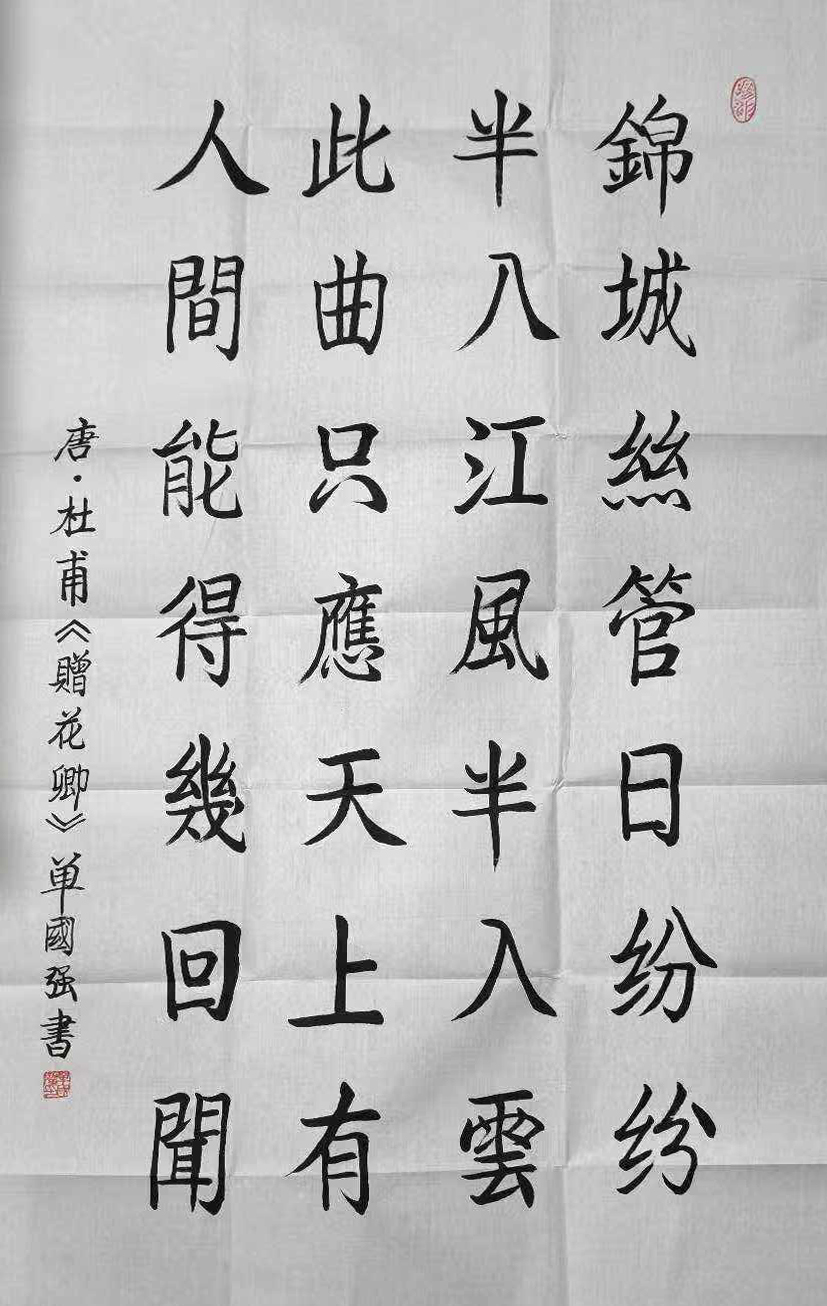 錦城絲管日纷纷
半入江風半入雲
此曲只應天上有
人間能得幾回聞
唐·杜甫《贈花卿》单國强書